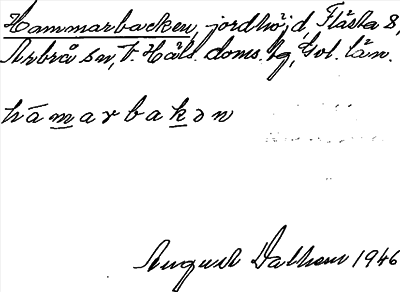 Hammarbacken, jordhöjd, Flästa 8,
Arbrå sn, V. Häls. doms. hg, Gvl. län.
hámarbakən
August Dalhem 1946